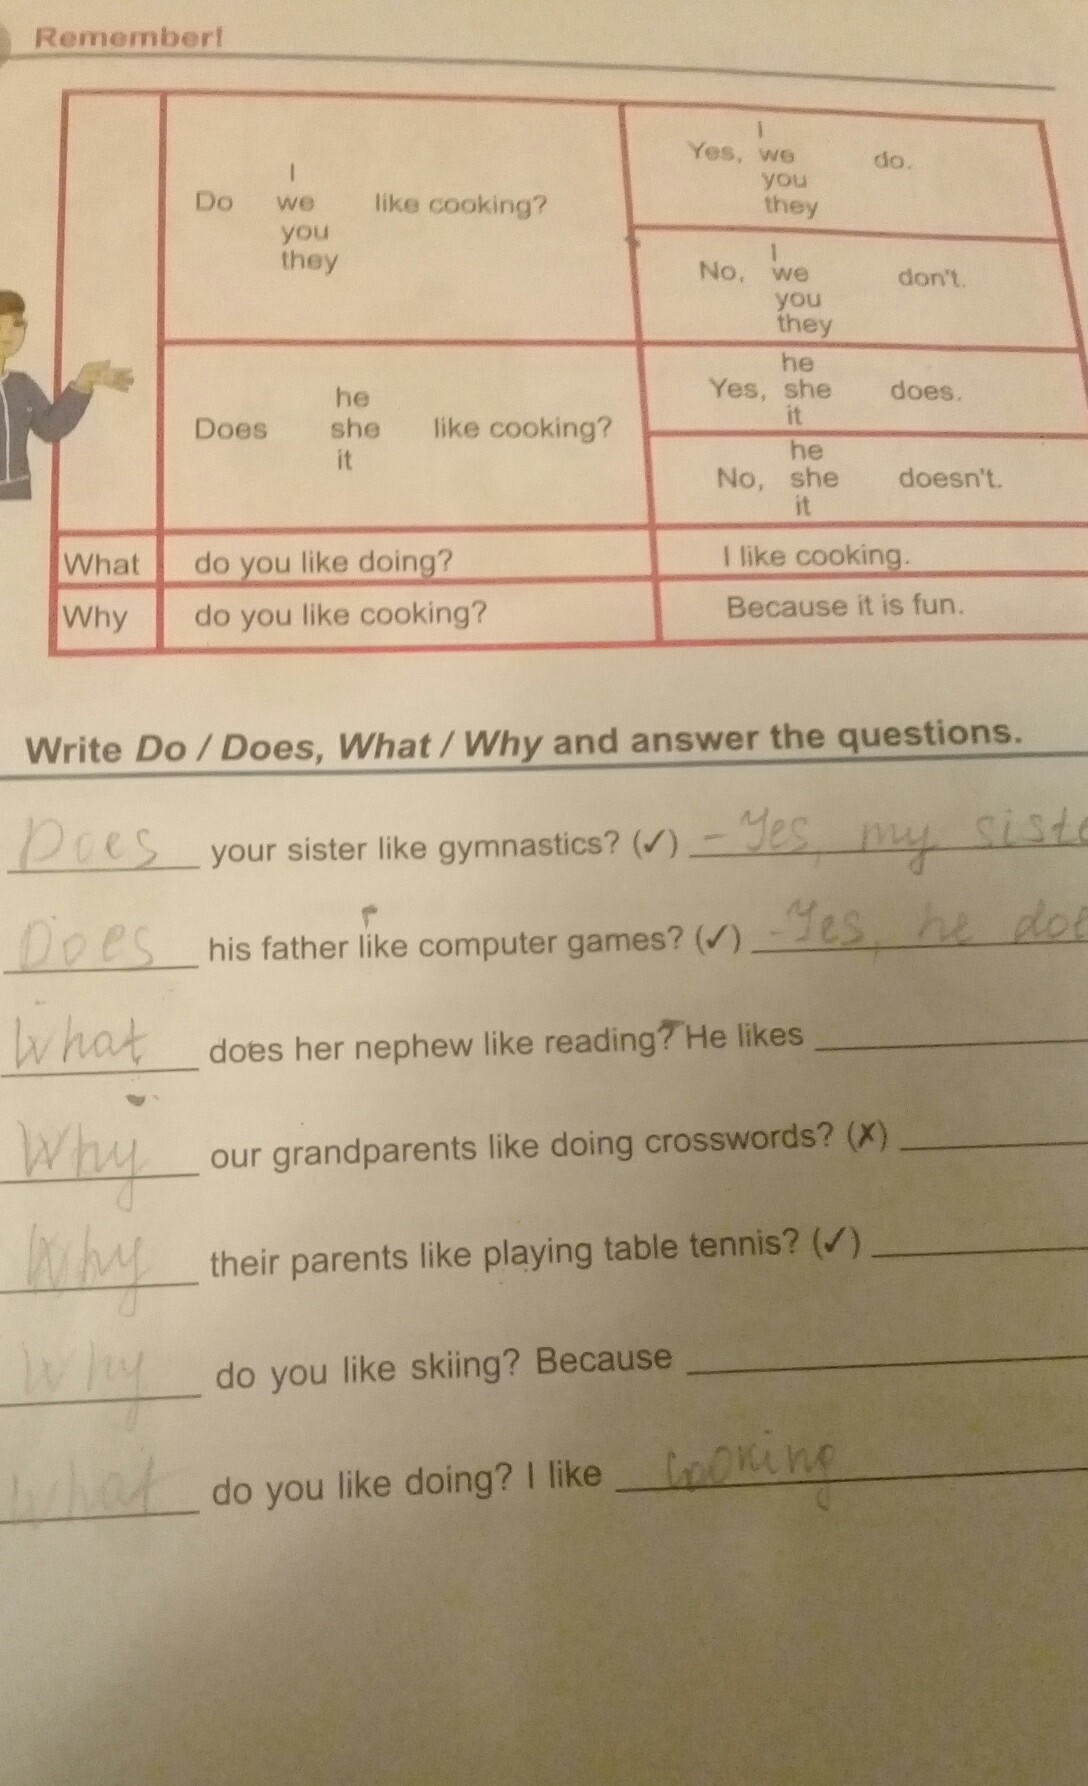 Remember!
Do I we you they like cooking?
Yes, I we you they do.
No, I we you they don't.
Does he she it like cooking?
Yes, he she it does.
No, he she it doesn't.
What do you like doing? I like cooking.
Why do you like cooking? Because it is fun.
Write Do / Does, What / Why and answer the questions.
Does your sister like gymnastics? (✓) - Yes, my siste
Does his father like computer games? (✓) - Yes, he doe
What does her nephew like reading? He likes
Why our grandparents like doing crosswords? (✗)
Why their parents like playing table tennis? (✓)
Why do you like skiing? Because
What do you like doing? I like cooking